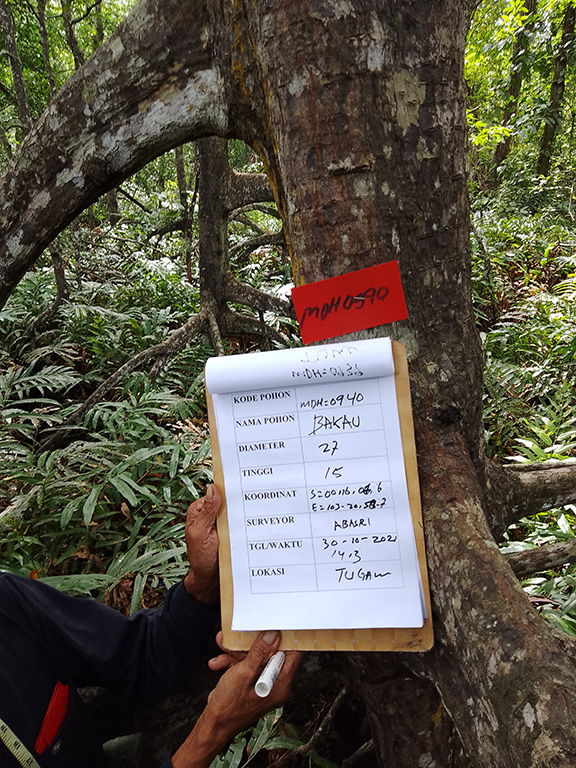 MDH 0940
MDH=0939
KODE POHON MDH=0940
NAMA POHON BAKAU
DIAMETER 27
TINGGI 15
KOORDINAT S=00.16,
E=103-20,
SURVEYOR ABASRI
TGL/WAKTU 30-10-2021
14.3
LOKASI TUGAW